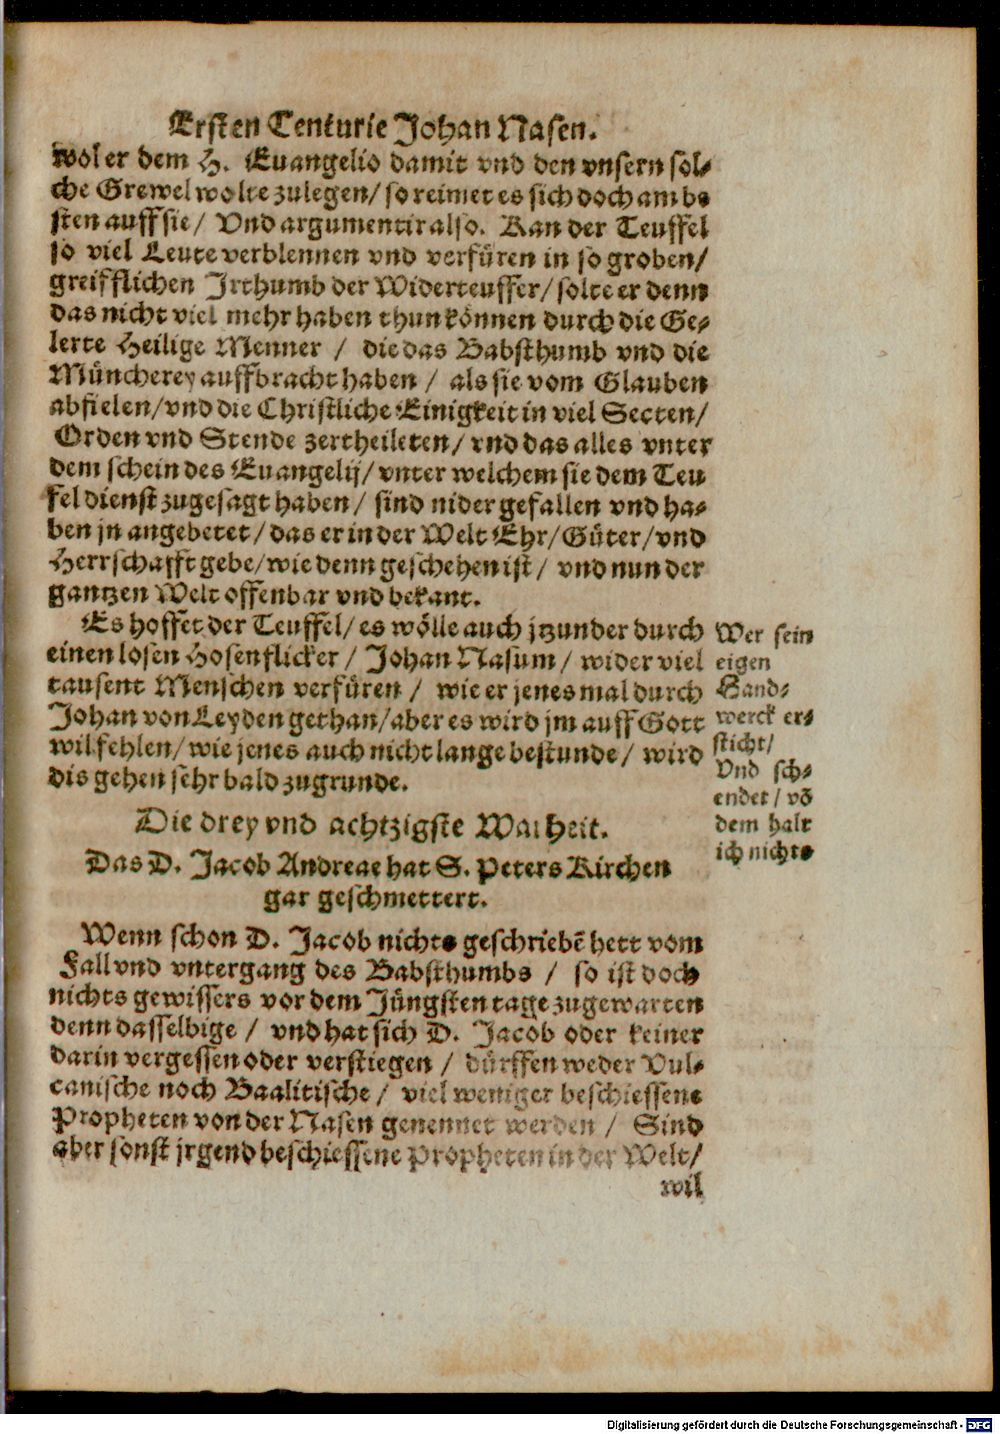 Ersten Centurie Johan Nasen.
wol er dem H. Euangelio damit vnd den vnsern sol⸗
che Grewel wolte zulegen/ so reimet es sich doch am be
sten auff sie/ Vnd argumentir also. Kan der Teuffel
so viel Leute verblennen vnd verfüren in so groben/
greifflichen Irthumb der Widerteuffer/ solte er denn
das nicht viel mehr haben thun können durch die Ge⸗
lerte Heilige Menner / die das Babsthumb vnd die
Müncherey auffbracht haben / als sie vom Glauben
abfielen/ vnd die Christliche Einigkeit in viel Secten/
Orden vnd Stende zertheileten/ vnd das alles vnter
dem schein des Euangelij/ vnter welchem sie dem Teu
fel dienst zugesagt haben / sind nider gefallen vnd ha⸗
ben jn angebetet/ das er in der Welt Ehr/ Güter/ vnd
Herrschafft gebe/ wie denn geschehen ist / vnd nun der
gantzen Welt offenbar vnd bekant.
Es hoffet der Teuffel/ es wölle auch jtzunder durch
einen losen Hosenflicker / Johan Nasum / wider viel
tausent Menschen verfüren / wie er jenes mal durch
Johan von Leyden gethan/ aber es wird jm auff Gott
wil fehlen/ wie jenes auch nicht lange bestunde/ wird
dis gehen sehr bald zugrunde.
Wer sein
eigen
Hand⸗
werck er⸗
sticht/
Vnd sch⸗
endet / võ
dem halt
ich nichts
Die drey vnd achtzigste Warheit.
Das D. Jacob Andreae hat S. Peters Kirchen
gar geschmettert.
Wenn schon D. Jacob nichts geschriebẽ hett vom
Fall vnd vntergang des Babsthumbs / so ist doch
nichts gewissers vor dem Jüngsten tage zugewarten
denn dasselbige / vnd hat sich D. Jacob oder keiner
darin vergessen oder verstiegen / dürffen weder Vul⸗
canische noch Baalitische / viel weniger beschiessene
Propheten von der Nasen genennet werden / Sind
aber sonst jrgend beschiessene Propheten in der Welt/
wil
Digitalisierung gefördert durch die Deutsche Forschungsgemeinschaft - DFG